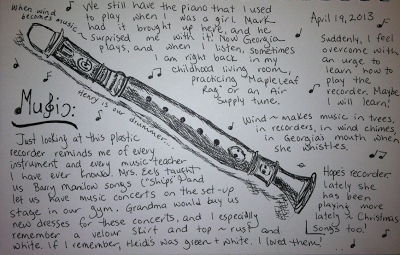 When wind
becomes music~
We still have the piano that I used
to play when I was a girl. Mark
had it brought up here, and he
surprised me with it. Now Georgia
plays, and when I listen, sometimes
I am right back in my
childhood living room,
practicing "Maple Leaf
Rag" or an Air
Supply tune.
April 19, 2013
Suddenly, I feel
overcome with
an urge to
learn how to
play the
recorder. Maybe
I will learn!
Wind ~ makes music in trees,
in recorders, in wind chimes,
in Georgia's mouth when
she whistles.
Henry is our drummer...
Music:
Just looking at this plastic
recorder reminds me of every
instrument and every music teacher
I have ever known. Mrs. Eels taught
us Barry Manilow songs ("Ships") and
let us have music concerts on the set-up
stage in our gym. Grandma would buy us
new dresses for these concerts, and I especially
remember a velour skirt and top ~ rust and
white. If I remember, Heidi's was green + white. I loved them!
Hope's recorder:
lately she
has been
playing more
lately ~ Christmas
songs too!